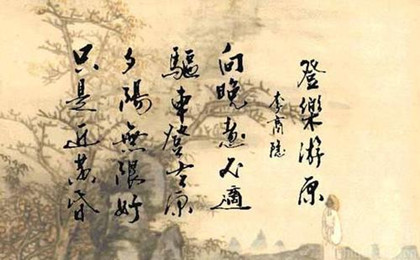 登樂游原
李商隱
向晚意不適
驅車登古原
夕陽無限好
只是近黄昏